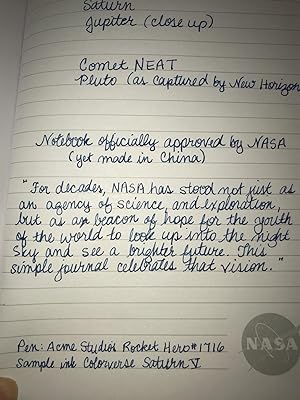 Saturn
Jupiter (close up)
Comet NEAT
Pluto (as captured by New Horizon
Notebook officially approved by NASA
(yet made in China)
"For decades, NASA has stood not just as
an agency of science and exploration,
but as an beacon of hope for the youth
of the world to look up into the night
sky and see a brighter future. This
simple journal celebrates that vision."
NASA
Pen: Acme Studios Rocket Hero #1716
Sample ink Colorverse Saturn V